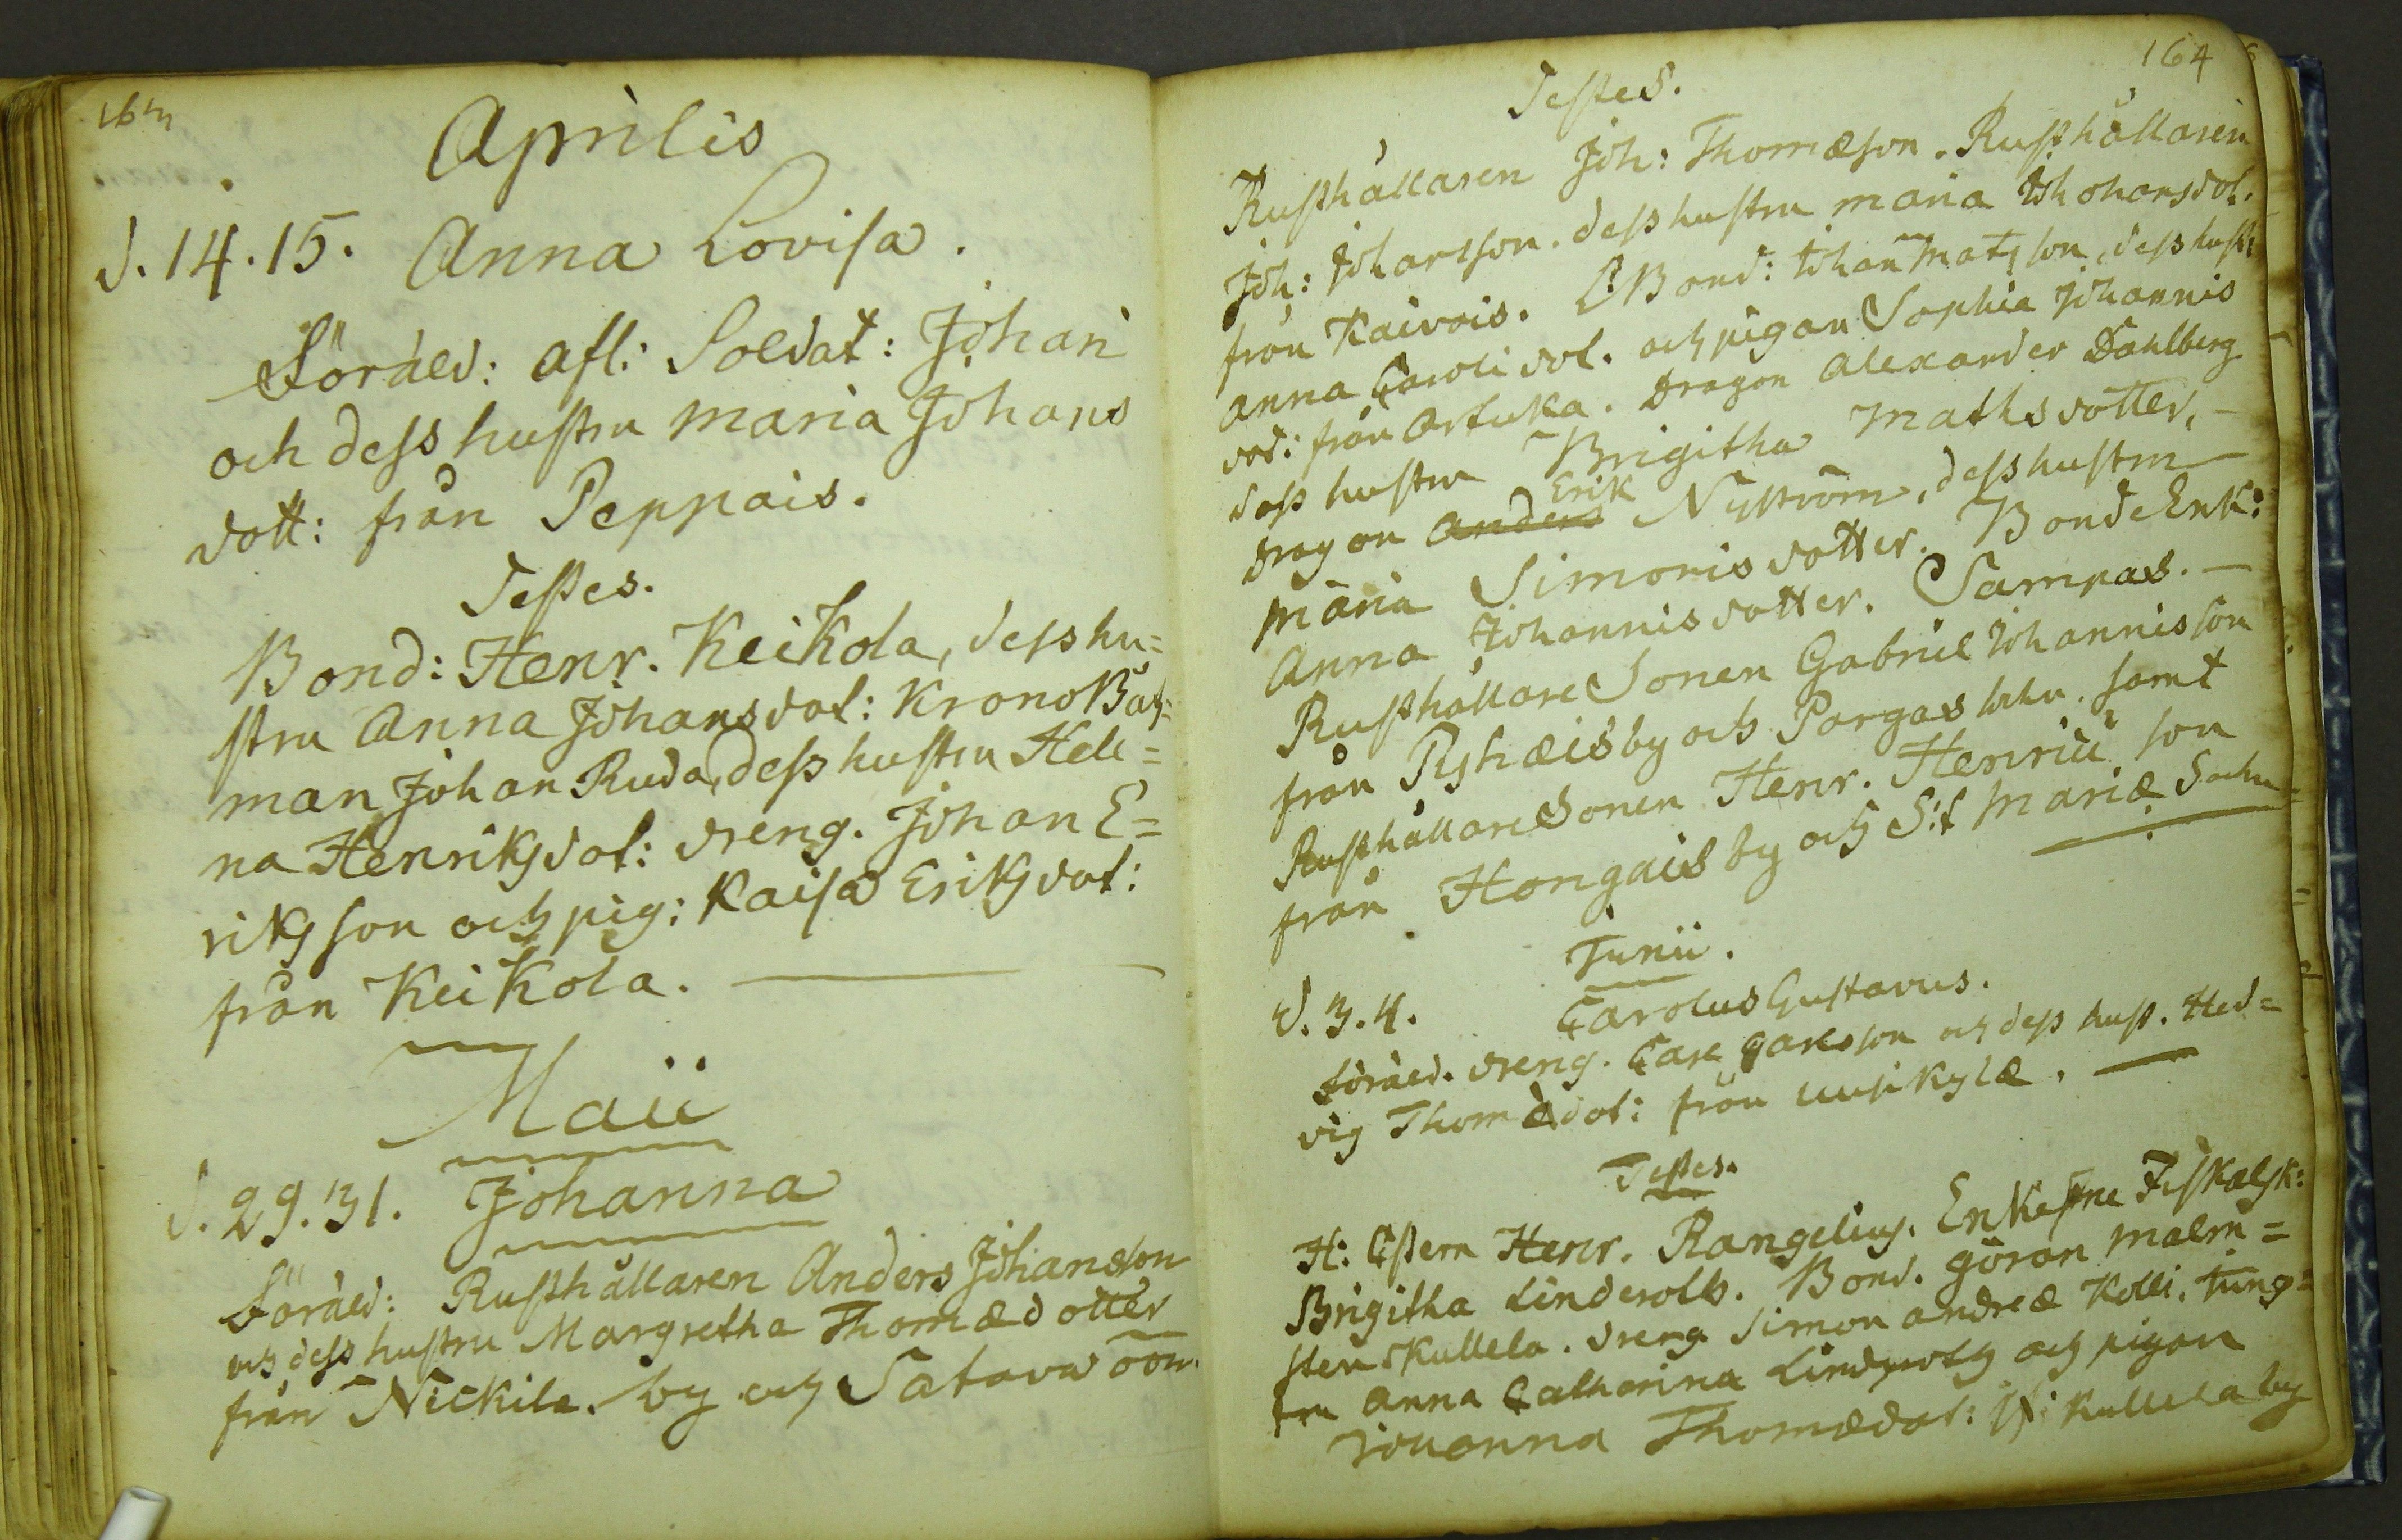 163
Aprilis
d. 14. 15. Anna Lovisa.
Föräld: afl: Soldat: Johan
och dess hustru Maria Johans
dott: från Peppais.
Testes.
Bond: Henr. Keikola, dess hu=
stru Anna Johansdot: Krono Båtz=
man Johan Ruda, dess hustru Hele=
na Henriksdot: dreng. Johan E=
riksson och pig: Kaisa Eriksdot:
från Keikola.
Maii
d. 29. 31. Johanna
Föräld: Rusthållaren Anders Johansson
och dess hustru Margretha Thomædotter
från Nickila by och Satava öön.
164
Testes.
Rusthållaren Joh: Thomæson. Rusthållaren
Joh: Johansson. dess hustru Maria Johansdot.
från Kaivois. Bond: Johan Matsson, dess hust:
Anna Caroli dot. och pigan Sophia Johannis
dot: från Artuka. Dragon Alexander Dahlberg
dess hustru Brigitha Mathsdotter,
Erik
Dragon Anders Nyström, dess hustru
Maria Simonisdotter. Bonde Enk:
Anna Johannisdotter. Sampas.
Rusthållare Sonen Gabriel Johannisson
från Pyhæis by och Pargas sokn. samt
Rusthållare Sonen Henr. Henrici son
från Hongais by och S:t Mariæ Sochn
Junii.
d. 3. 4. Carolus Gustavus.
Föräld. dreng. Carl Carlsson och dess hust. Hed=
vig Thomædot: från Uusikylæ.
Testes.
H: Henr. Rangelius. Enkefru Fiskalsk:
Brigitha Linderoth. Bond. Göran Malm=
sten Kullela. dreng Simon Andreæ Kolli, Jung=
fru Anna Catharina och pigan
Johanna Thomædot: Kullela by